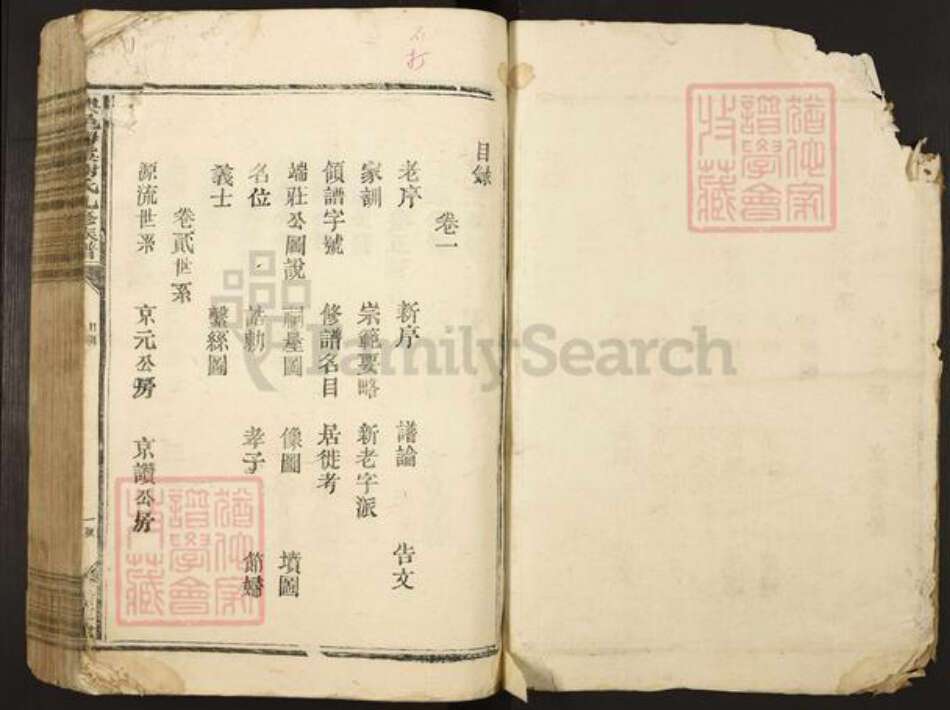 目錄
卷一
老序 新序 譜論 告文
家訓 崇範要略 新老字派
領譜字號 修譜名目 居徙考
端莊公圖說 祠基圖 像圖 墳圖
名位 誥勅 孝子 節婦
義士 繫絲圖
卷貳世系
源流世系 京元公房 京讚公房
目錄
一號
FamilySearch
猶他家譜學會收藏
猶他家譜學會收藏